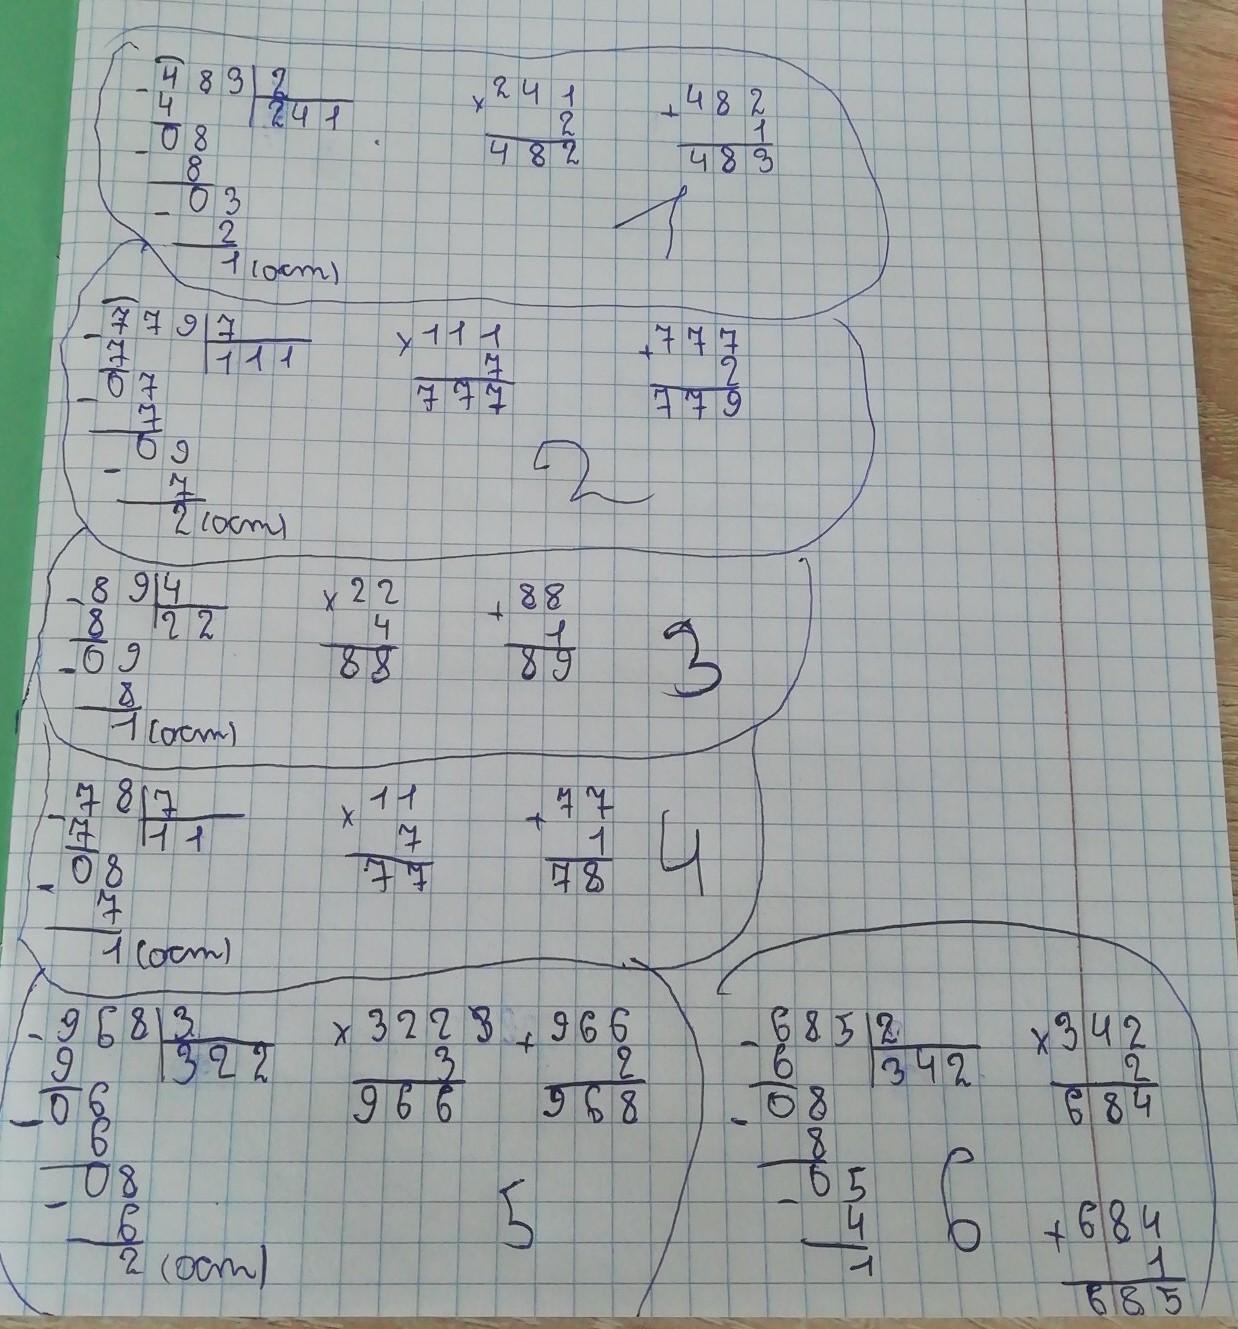 - 4 8 3 | 2
4 | 2 4 1
0 8
- 8
0 3
- 2
1 (ост)
× 2 4 1
2
4 8 2
+ 4 8 2
1
4 8 3
1
- 7 7 9 | 7
7 | 1 1 1
0 7
- 7
0 9
- 7
2 (ост)
× 1 1 1
7
7 7 7
+ 7 7 7
2
7 7 9
2
- 8 9 | 4
8 | 2 2
- 0 9
8
1 (ост)
× 2 2
4
8 8
+ 8 8
1
8 9
3
- 7 8 | 7
7 | 1 1
0 8
- 7
1 (ост)
× 1 1
7
7 7
+ 7 7
1
7 8
4
- 9 6 8 | 3
9 | 3 2 2
- 0 6
6
0 8
- 6
2 (ост)
× 3 2 2 3
3
9 6 6
+ 9 6 6
2
9 6 8
5
- 6 8 5 | 2
6 | 3 4 2
0 8
- 8
0 5
- 4
1
× 3 4 2
2
6 8 4
6
+ 6 8 4
1
6 8 5